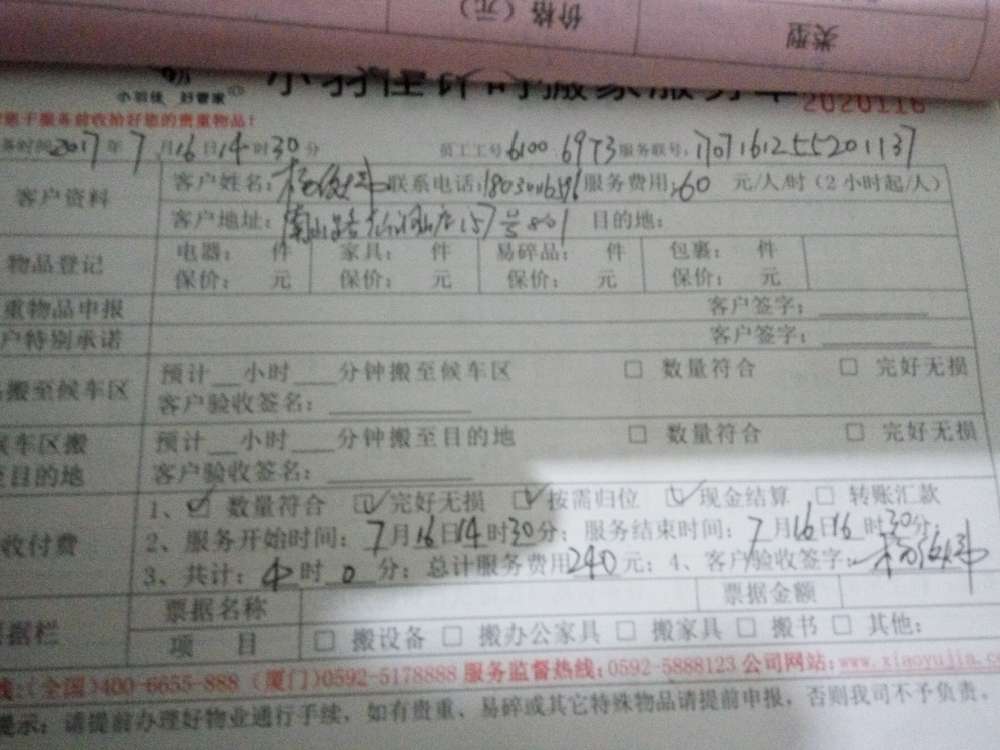 价格(元) 类型
小羽佳 好管家 小羽佳计时搬家服务单 2020116
服务前收拾好您的贵重物品!
务时间2017年7月16日14时30分 员工工号6100 6973 服务联号:170716125520 1137
客户资料 客户姓名: 联系电话: 服务费用:60 元/人/时(2小时起/人)
客户地址: 157号801 目的地:
物品登记 电器: 件 家具: 件 易碎品: 件 包裹: 件
保价: 元 保价: 元 保价: 元 保价: 元
重物品申报 客户签字:
户特别承诺 客户签字:
搬至候车区 预计__小时___分钟搬至候车区 □ 数量符合 □ 完好无损
客户验收签名:
候车区搬 预计__小时___分钟搬至目的地 □ 数量符合 □ 完好无损
至目的地 客户验收签名:
收付费 1、☑ 数量符合 ☑ 完好无损 ☑ 按需归位 ☑ 现金结算 □ 转账汇款
2、服务开始时间:7月16日14时30分;服务结束时间:7月16日16时30分;
3、共计:4时0分;总计服务费用240元;4、客户验收签字:
据栏 票据名称 票据金额
项 目 □ 搬设备 □ 搬办公家具 □ 搬家具 □ 搬书 □ 其他:
线:(全国)400-6655-888 (厦门)0592-5178888 服务监督热线:0592-5888123 公司网站:www.xiaoyujia.c
提示:请提前办理好物业通行手续,如有贵重、易碎或其它特殊物品请提前申报,否则我司不予负责。